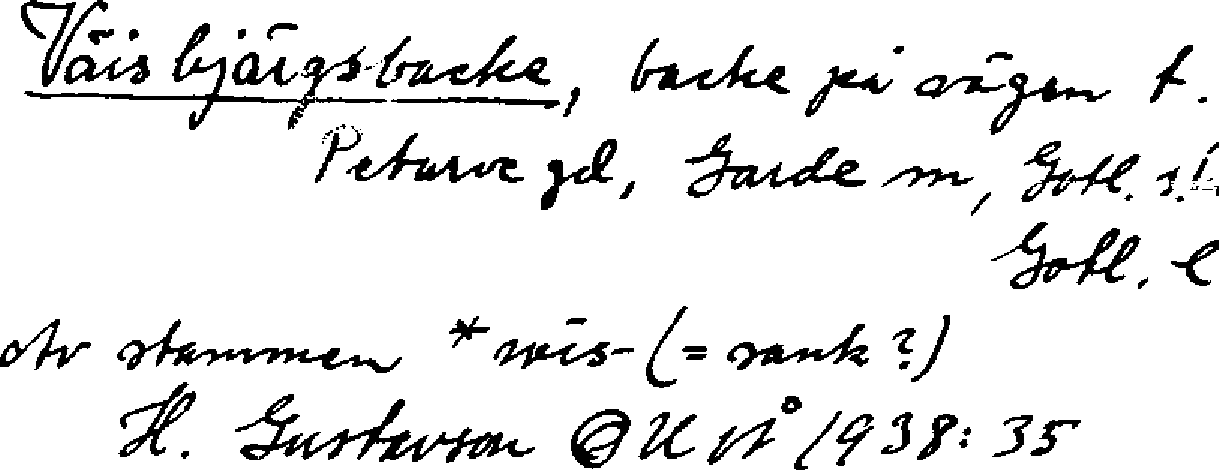 Väisbjärgsbacke, backe på vägen t.
Petarve gd, Garde sn, Gotl. s.
Gotl. l
Av stammen *wīs- (= sank?)
H. Gustavson OUÅ 1938: 35